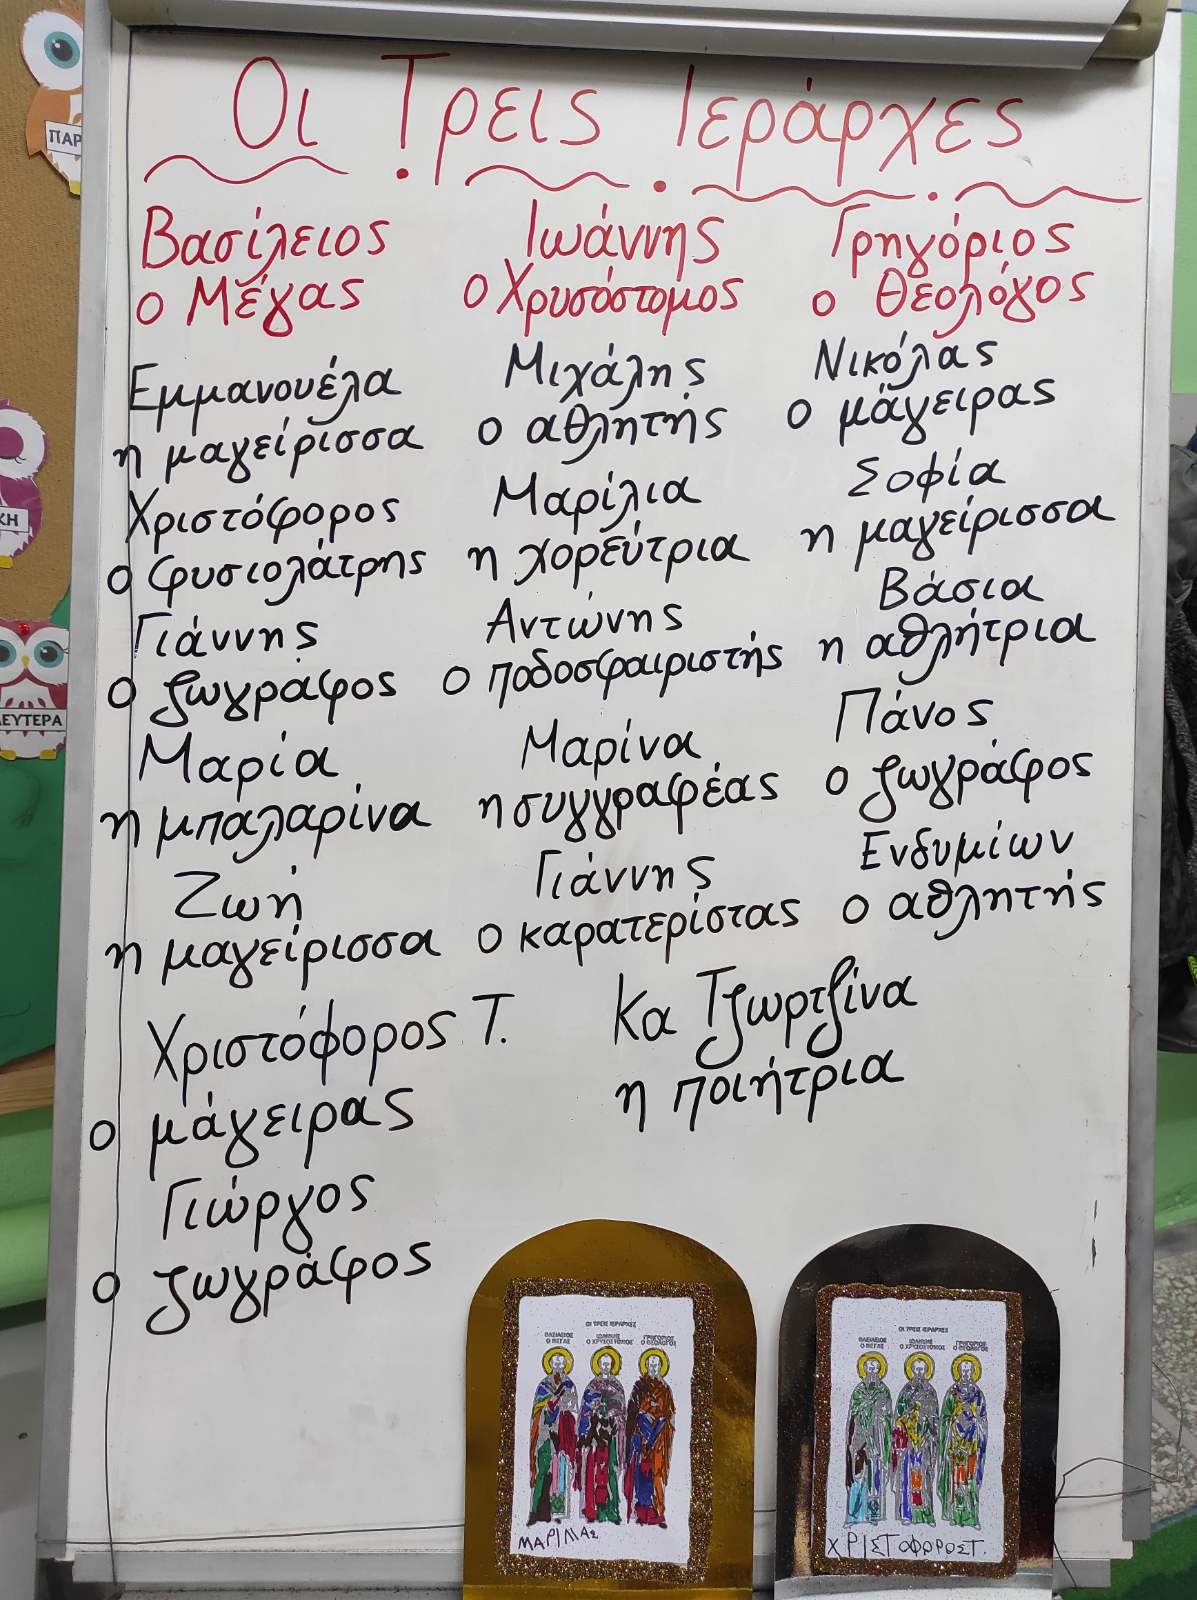 Οι Τρεις Ιεράρχες
Βασίλειος
ο Μέγας
Ιωάννης
ο Χρυσόστομος
Γρηγόριος
ο Θεολόγος
Εμμανουέλα
η μαγείρισσα
Μιχάλης
ο αθλητής
Νικόλας
ο μάγειρας
Χριστόφορος
ο φυσιολάτρης
Μαρίλια
η χορεύτρια
Σοφία
η μαγείρισσα
Γιάννης
ο ζωγράφος
Αντώνης
ο ποδοσφαιριστής
Βάσια
η αθλήτρια
Μαρία
η μπαλαρίνα
Μαρίνα
η συγγραφέας
Πάνος
ο ζωγράφος
Ζωή
η μαγείρισσα
Γιάννης
ο καρατερίστας
Ενδυμίων
ο αθλητής
Χριστόφορος Τ.
ο μάγειρας
Κα Τζωρτζίνα
η ποιήτρια
Γιώργος
ο ζωγράφος
ΟΙ ΤΡΕΙΣ ΙΕΡΑΡΧΕΣ
ΒΑΣΙΛΕΙΟΣ
Ο ΜΕΓΑΣ
ΙΩΑΝΝΗΣ
Ο ΧΡΥΣΟΣΤΟΜΟΣ
ΓΡΗΓΟΡΙΟΣ
Ο ΘΕΟΛΟΓΟΣ
ΟΙ ΤΡΕΙΣ ΙΕΡΑΡΧΕΣ
ΒΑΣΙΛΕΙΟΣ
Ο ΜΕΓΑΣ
ΙΩΑΝΝΗΣ
Ο ΧΡΥΣΟΣΤΟΜΟΣ
ΓΡΗΓΟΡΙΟΣ
Ο ΘΕΟΛΟΓΟΣ
ΧΡΙΣΤΟΦΩΡΟΣΤ.
ΠΑΡ
ΚΗ
ΔΕΥΤΕΡΑ